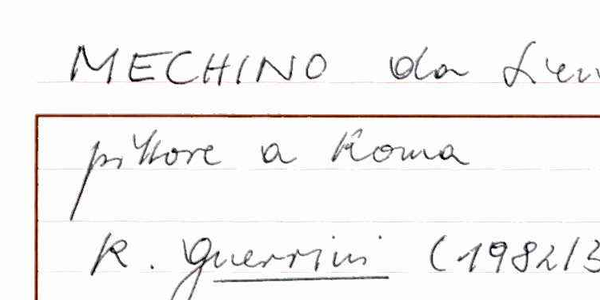 MECHINO da Sien
pittore a Roma
R. Guerrini (1982/3